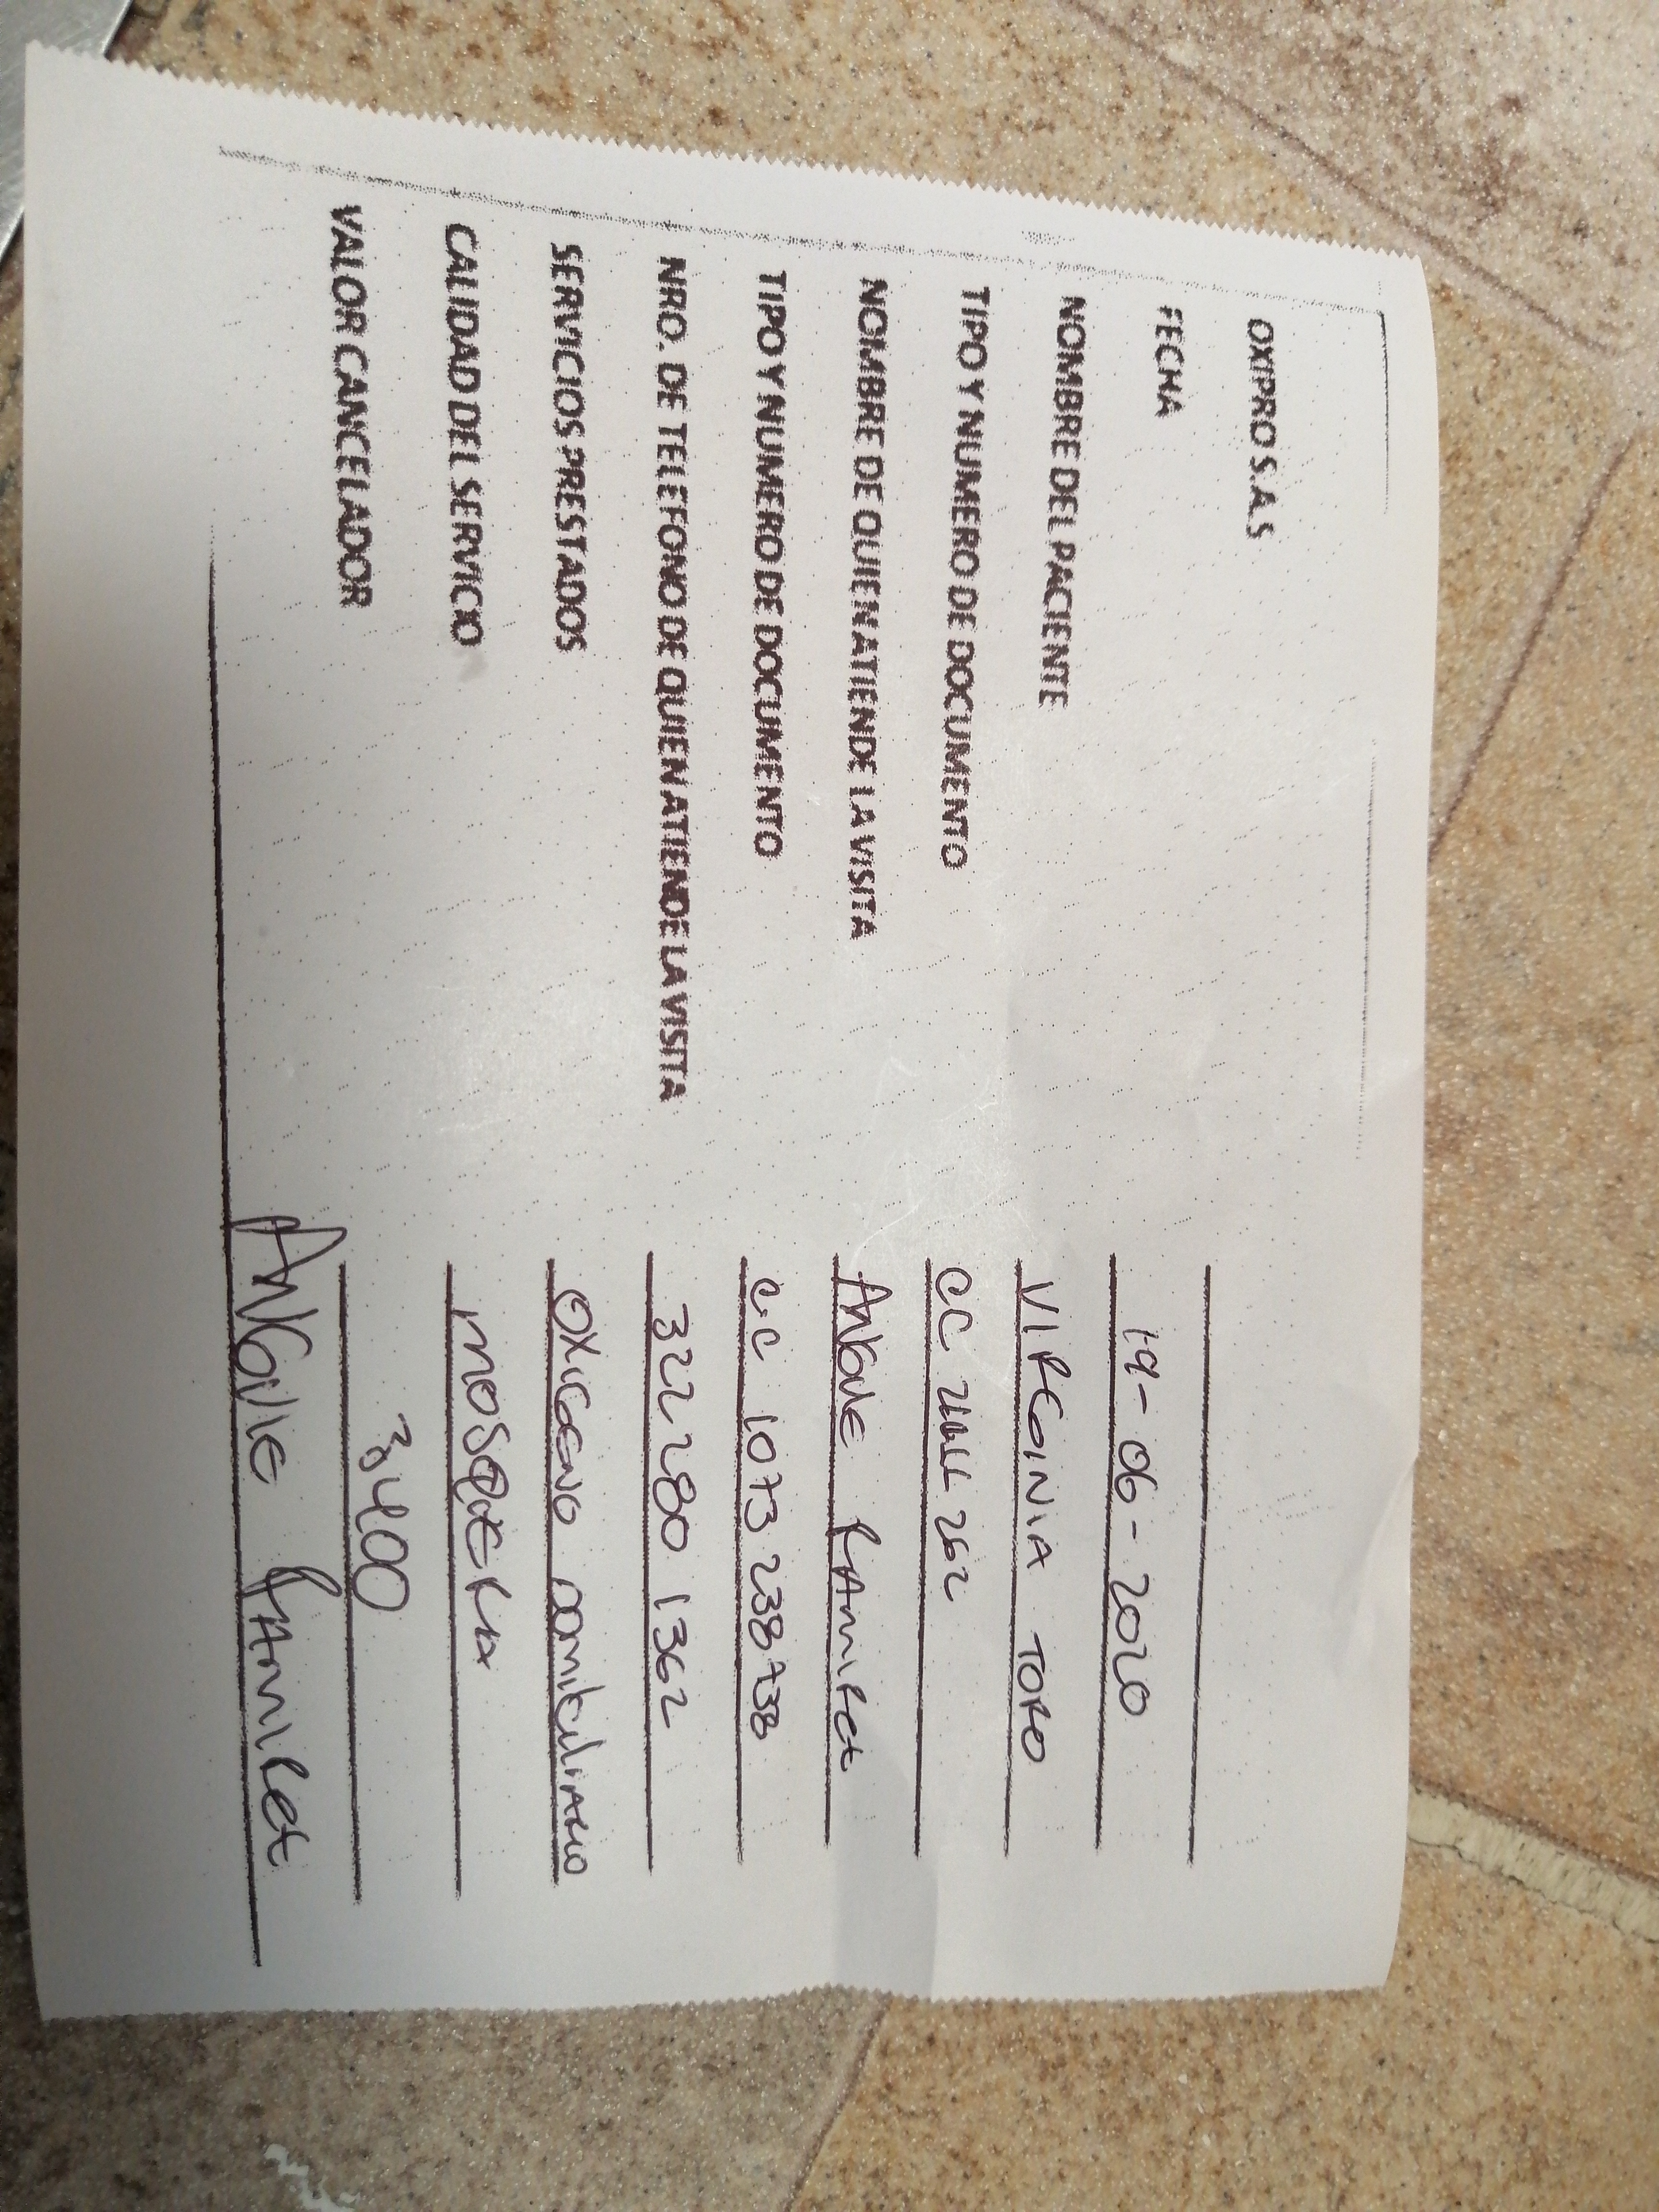 OXIPRO S.A.S
FECHA 19-06-2020
NOMBRE DEL PACIENTE VIRGINIA TORO
TIPO Y NUMERO DE DOCUMENTO CC 262
NOMBRE DE QUIEN ATIENDE LA VISITA ANGIVE RAMIREZ
TIPO Y NUMERO DE DOCUMENTO C.C 1073 238738
NRO. DE TELEFONO DE QUIEN ATIENDE LA VISITA 322 280 1362
SERVICIOS PRESTADOS OXIGENO DOMICILIARIO
CALIDAD DEL SERVICIO MOSQUERA
VALOR CANCELADOR 3,400
ANGIVIE RAMIREZ